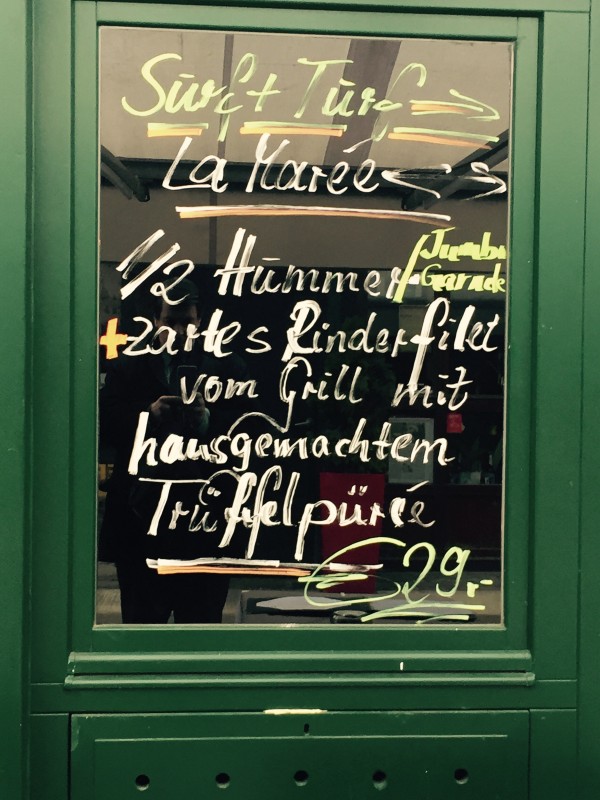 Surf + Turf
La Mareé
1/2 Hummer/
Jumbo
Garnele
+zartes Rinderfilet
vom Grill mit
hausgemachtem
Trüffelpüreé
€ 29,-